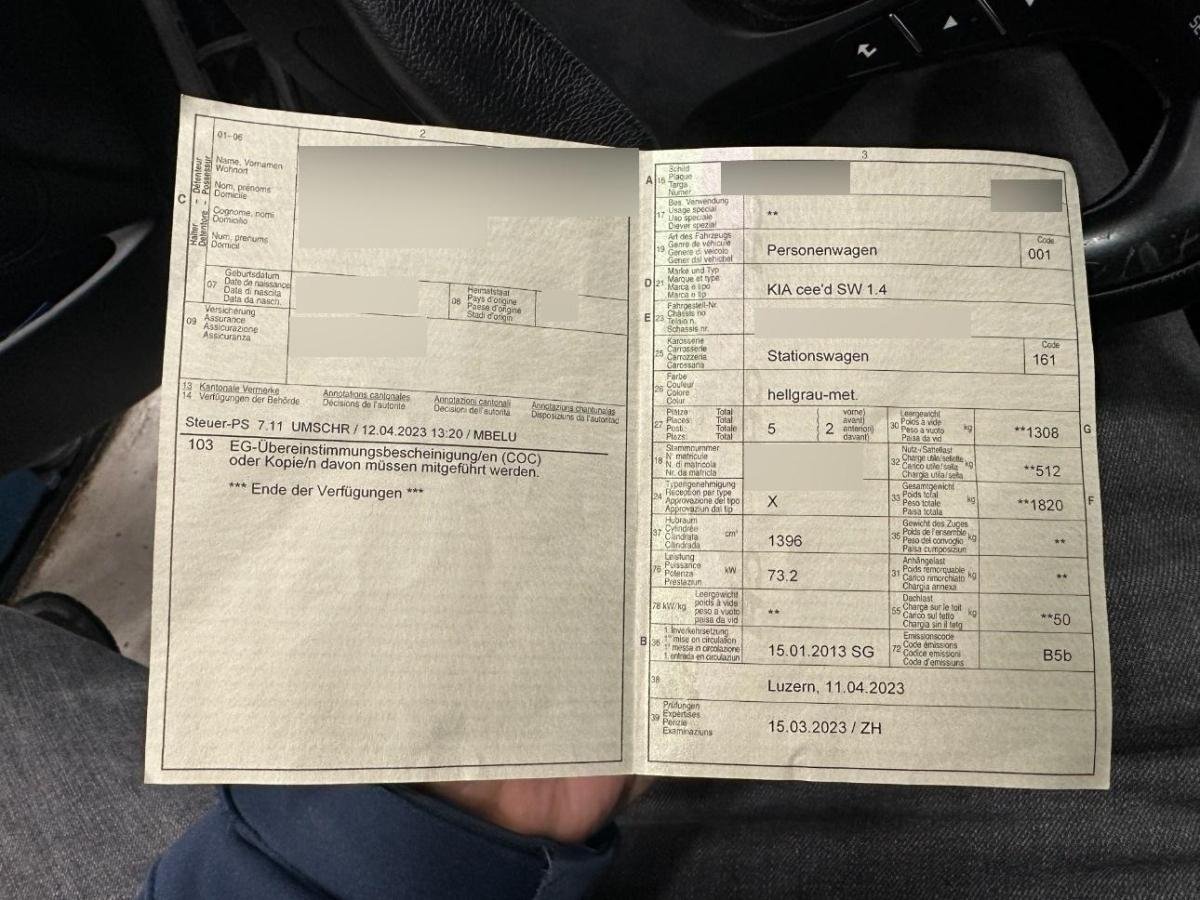 2
01-06
C
Halter - Détenteur
Detentore - Possessur
Name, Vornamen
Wohnort
Nom, prénoms
Domicile
Cognome, nomi
Domicilio
Num, prenums
Domicil
07
Geburtsdatum
Date de naissance
Data di nascita
Data da nasch.
08
Heimatstaat
Pays d'origine
Paese d'origine
Stadi d'origin
09
Versicherung
Assurance
Assicurazione
Assicuranza
13 Kantonale Vermerke Annotations cantonales Annotazioni cantonali Annotaziuns chantunalas
14 Verfügungen der Behörde Décisions de l'autorité Decisioni dell'autorità Disposiziuns da l'autoritad
Steuer-PS 7.11 UMSCHR / 12.04.2023 13:20 / MBELU
103 EG-Übereinstimmungsbescheinigung/en (COC)
oder Kopie/n davon müssen mitgeführt werden.
*** Ende der Verfügungen ***
3
A 15
Schild
Plaque
Targa
Numer
17
Bes. Verwendung
Usage spécial
Uso speciale
Diever spezial
**
19
Art des Fahrzeugs
Genre de véhicule
Genere di veicolo
Gener dal vehichel
Personenwagen
Code
001
D 21
Marke und Typ
Marque et type
Marca e tipo
Marca e tip
KIA cee'd SW 1.4
E 23
Fahrgestell-Nr.
Châssis no
Telaio n.
Schassis nr.
25
Karosserie
Carrosserie
Carrozzeria
Carossaria
Stationswagen
Code
161
26
Farbe
Couleur
Colore
Colur
hellgrau-met.
27
Plätze Total
Places: Total
Posti: Totale
Plazs: Total
5 2
vorne)
avant)
anteriori)
davant)
30
Leergewicht
Poids à vide
Peso a vuoto
Paisa da vid
kg
**1308
G
18
Stammnummer
N matricule
N. di matricola
Nr. da matricla
32
Nutz-/Sattellast
Charge utile/sellette
Carico utile/sella
Chargia utila/sella
kg
**512
24
Typengenehmigung
Réception par type
Approvazione del tipo
Approvaziun dal tip
X
33
Gesamtgewicht
Poids total
Peso totale
Paisa totala
kg
**1820
F
37
Hubraum
Cylindrée
Cilindrata
Cilindrada
cm³
1396
35
Gewicht des Zuges
Poids de l'ensemble
Peso del convoglio
Paisa cumposiziun
kg
**
76
Leistung
Puissance
Potenza
Prestaziun
kW
73.2
31
Anhängelast
Poids remorquable
Carico rimorchiato
Chargia annexa
kg
**
78 kW/kg
Leergewicht
poids à vide
peso a vuoto
paisa da vid
**
55
Dachlast
Charge sur le toit
Carico sul tetto
Chargia sin il tetg
kg
**50
B 36
1. Inverkehrsetzung
1re mise en circulation
1a messa in circolazione
1. entrada en circulaziun
15.01.2013 SG
72
Emissionscode
Code émissions
Codice emissioni
Code d'emissiuns
B5b
38
Luzern, 11.04.2023
39
Prüfungen
Expertises
Perizie
Examinaziuns
15.03.2023 / ZH